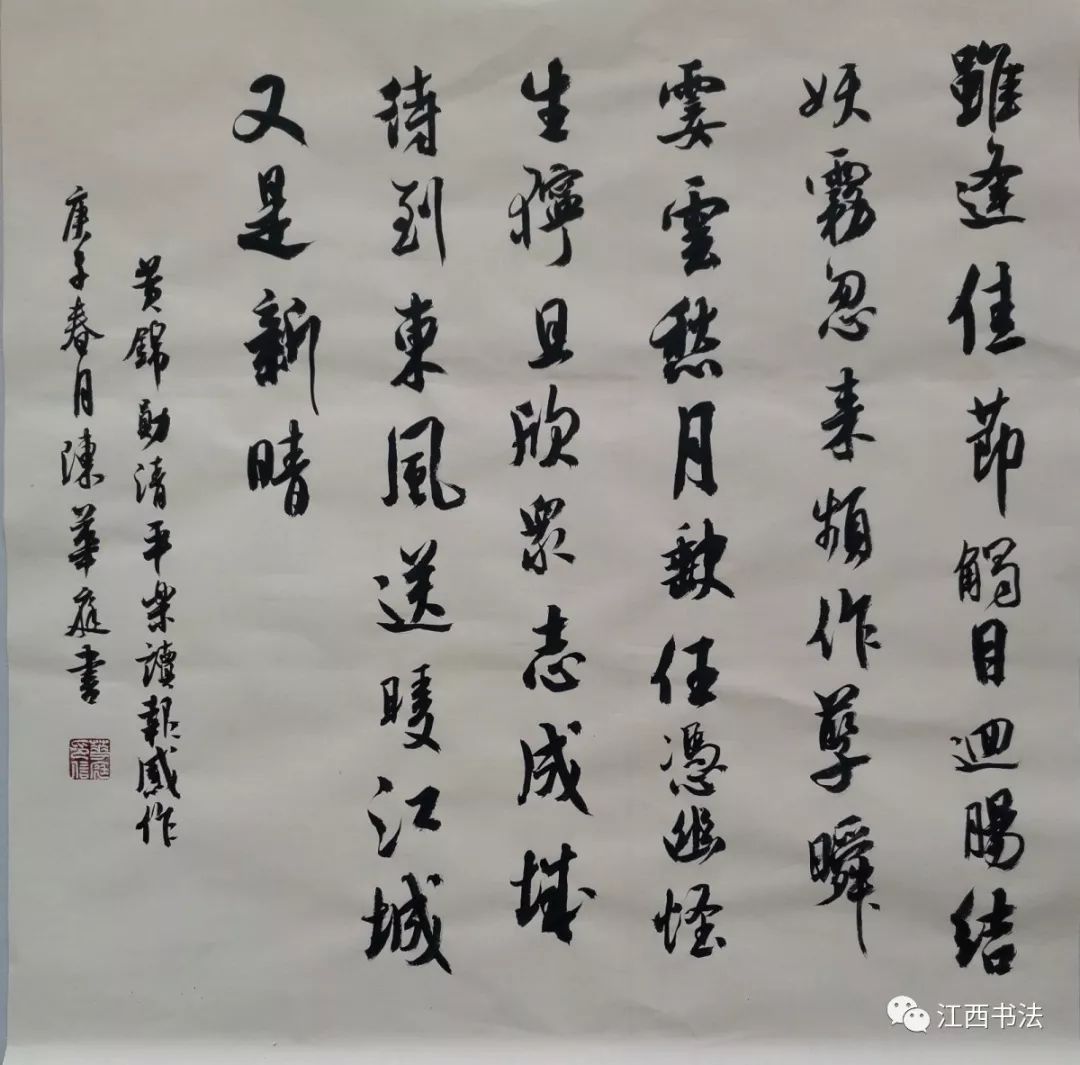 雖逢佳節觸目迴腸結
妖霧忽来頻作孽瞬
霎雲愁月缺任憑幽怪
生獰且欣眾志成城
待到東風送暖江城
又是新晴
黄錦勛清平樂讀報感作
庚子春月陳華庭書
華庭
江西书法